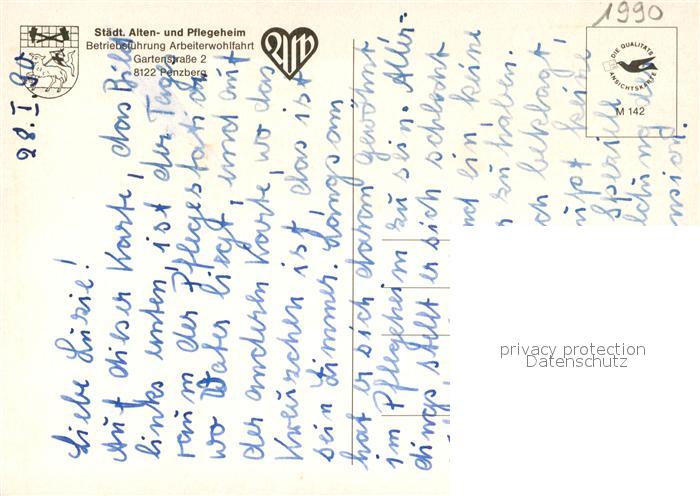 Städt. Alten- und Pflegeheim
Betriebsführung Arbeiterwohlfahrt
Gartenstraße 2
8122 Penzberg
1990
DIE QUALITÄTS
ANSICHTSKARTE
M 142
28.I.90
Liebe Luzie!
Auf dieser Karte, das Bild
links unten, ist der Tages
raum der Pflegestation
wo Vater liegt, und auf
der anderen Karte, wo das
Kreuzchen ist, das ist
sein Zimmer. Langsam
hat er sich daran gewöhnt
im Pflegeheim zu sein. Aller-
dings, stellt er sich schlecht
ein, keine
zu haben.
ich beklagt,
keine
privacy protection
Datenschutz